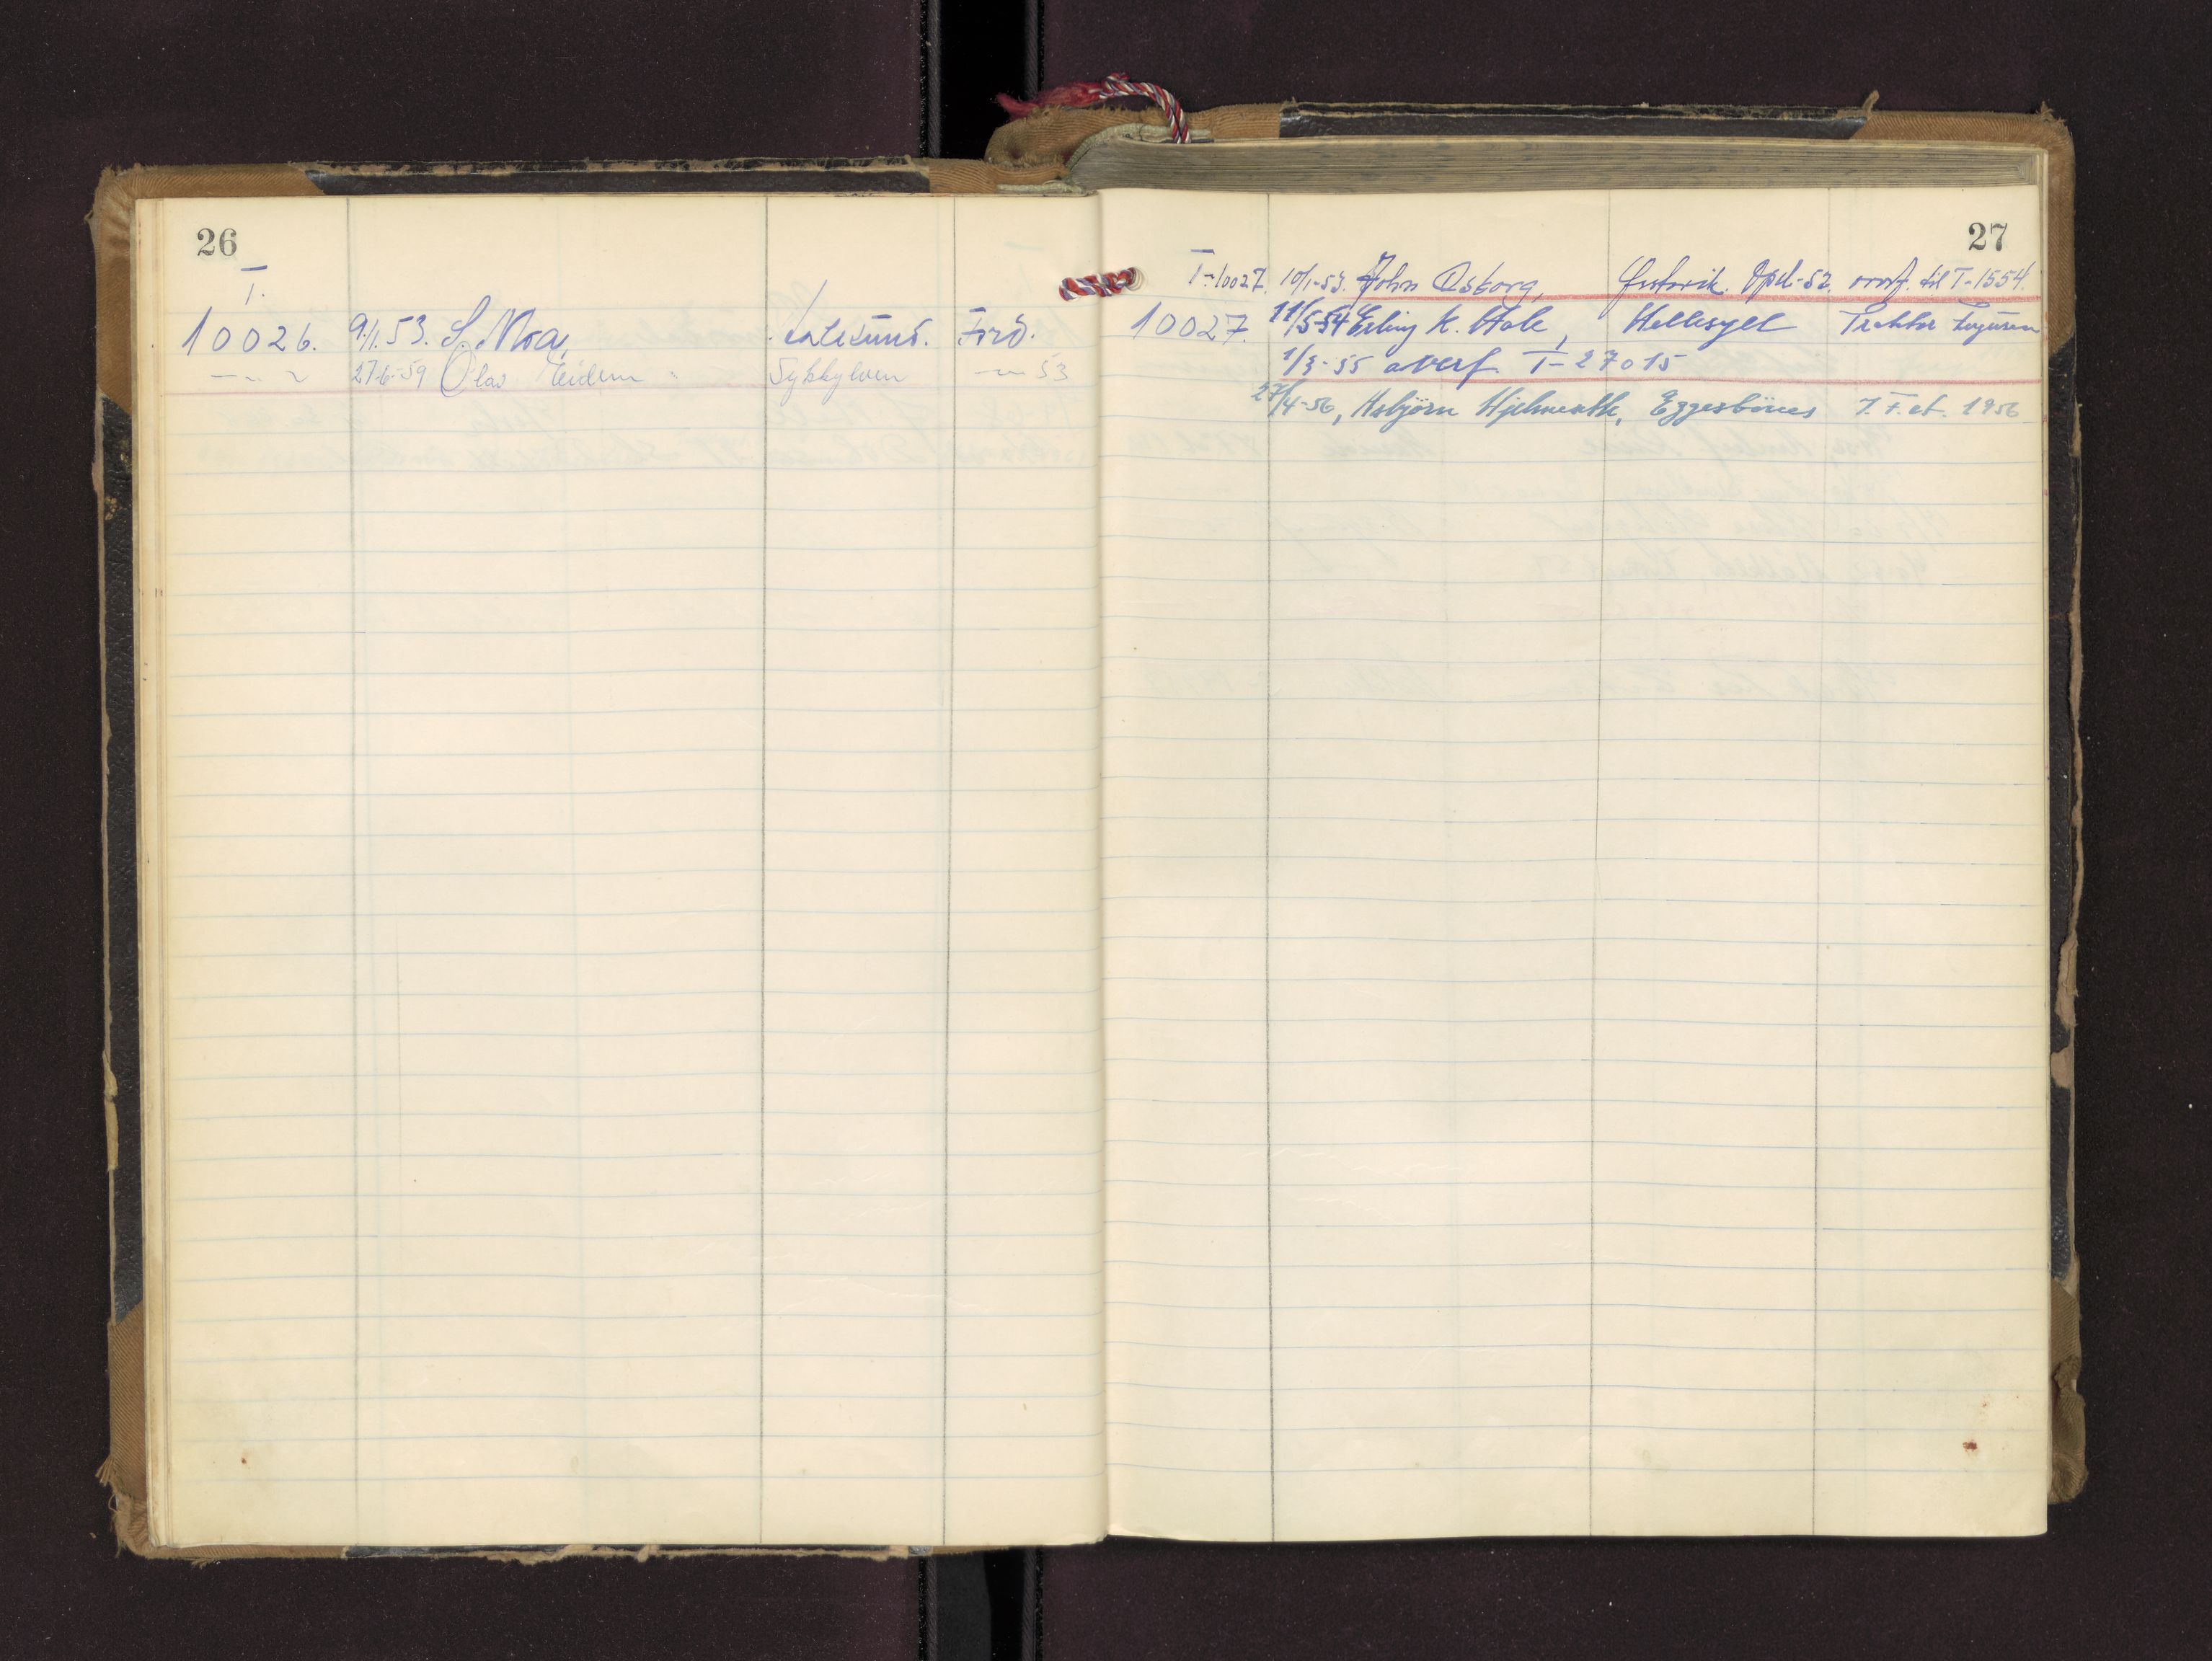 26
T.
10026. 9/1.53. S. Moa, Aalesund. Ford.
— " — 27-6-59 Olav Eidem Sykkylven — " — 53
27
T-10027. 10/1-53. John Osborg, Ørstavik. Opel-52. overf. til T-1554.
10027. 11/5-54 Erling K. Hole, Hellesylt Traktor Ferguson
1/3-55 overf. T-27015
27/4-56, Asbjørn Hjelmeseth, Eggesbönes 1956